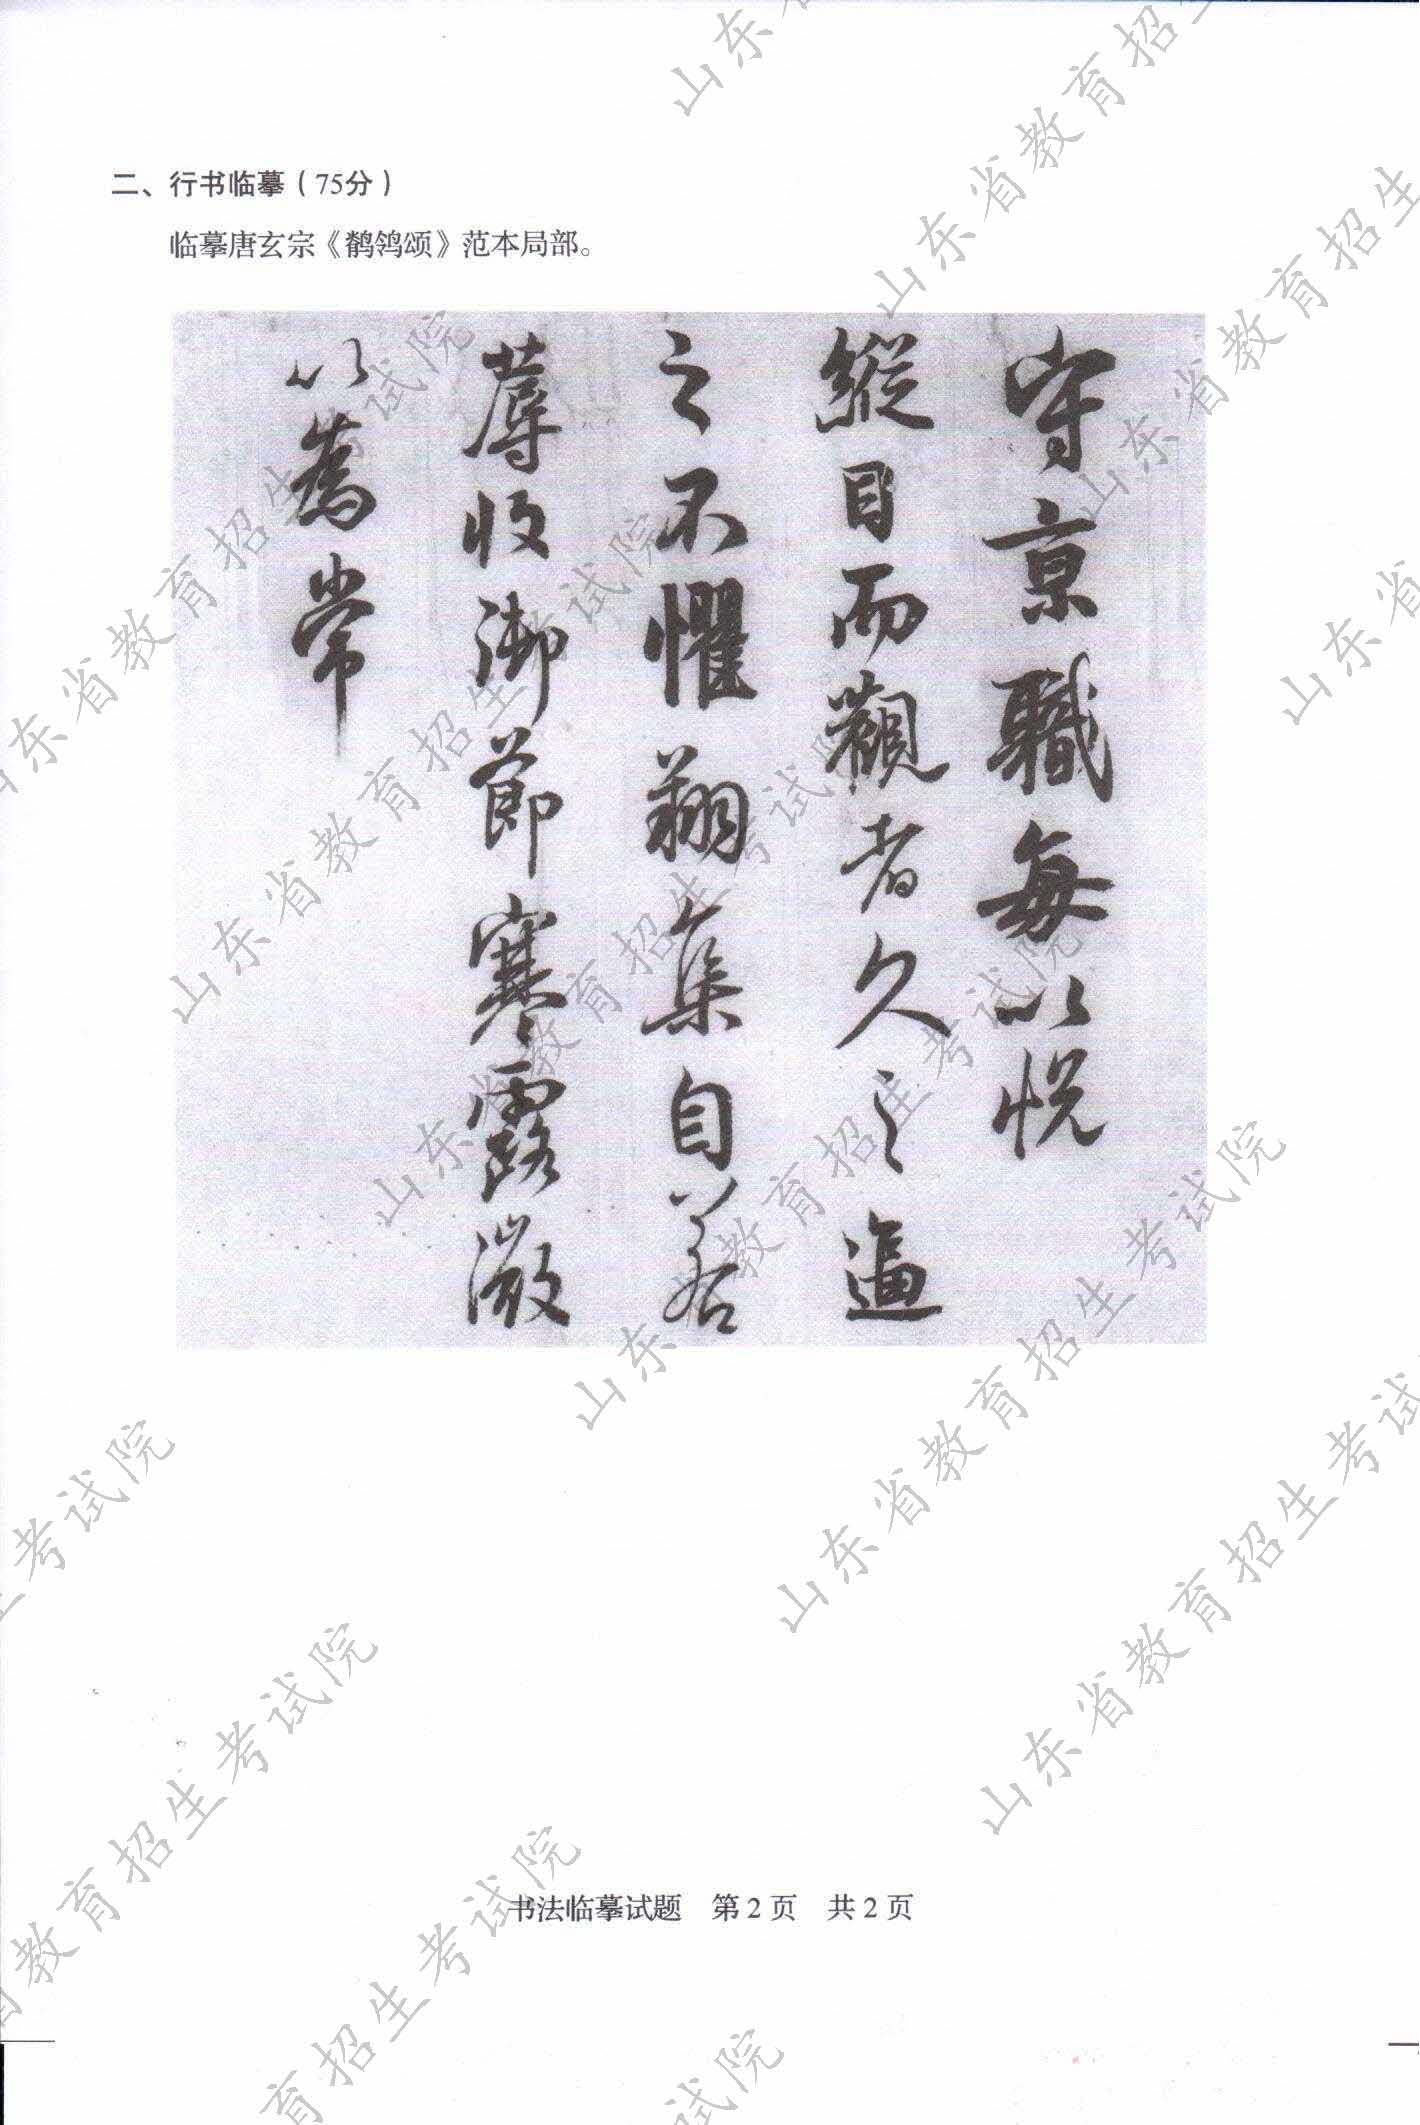 二、行书临摹（75分）
临摹唐玄宗《鹡鸰颂》范本局部。
守京職每以悦
縱目而觀者久之逼
之不懼翔集自若
蓐收御節寒露微
以為常
书法临摹试题 第2页 共2页
山东省教育招生考试院